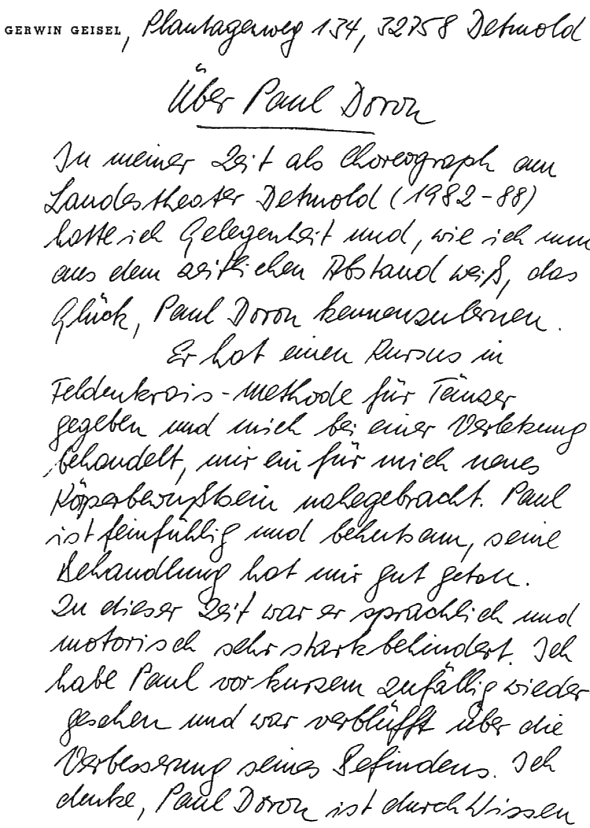 GERWIN GEISEL, Plantagenweg 134, 32758 Detmold
Über Paul Doron
In meiner Zeit als Choreograph am
Landestheater Detmold (1982-88)
hatte ich Gelegenheit und, wie ich nun
aus dem zeitlichen Abstand weiß, das
Glück, Paul Doron kennenzulernen.
Er hat einen Kursus in
Feldenkrais-Methode für Tänzer
gegeben und mich bei einer Verletzung
behandelt, mir ein für mich neues
Körperbewußtsein nahegebracht. Paul
ist feinfühlig und behutsam, seine
Behandlung hat mir gut getan.
Zu dieser Zeit war er sprachlich und
motorisch sehr stark behindert. Ich
habe Paul vor kurzem zufällig wieder
gesehen und war verblüfft über die
Verbesserung seines Befindens. Ich
denke, Paul Doron ist durch Wissen